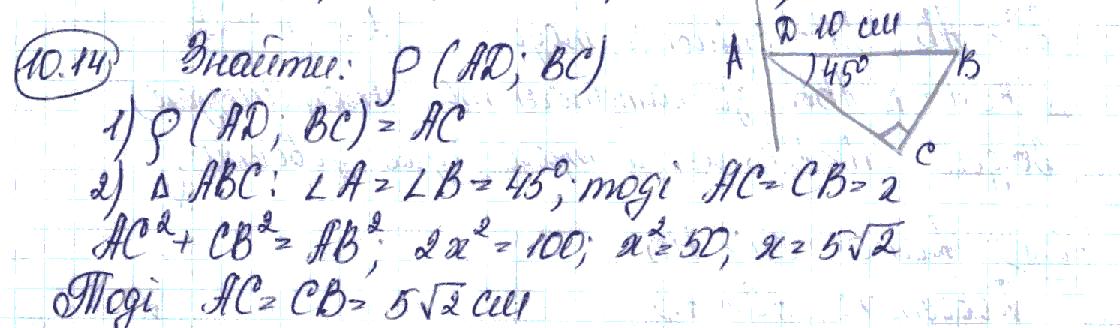 10.14 Знайти: ρ (AD; BC)
D 10 см
A 45° B
C
1) ρ (AD; BC) = AC
2) Δ ABC: ∠A = ∠B = 45°; тоді AC = CB = x
AC² + CB² = AB²; 2x² = 100; x² = 50; x = 5√2
Тоді AC = CB = 5√2 см